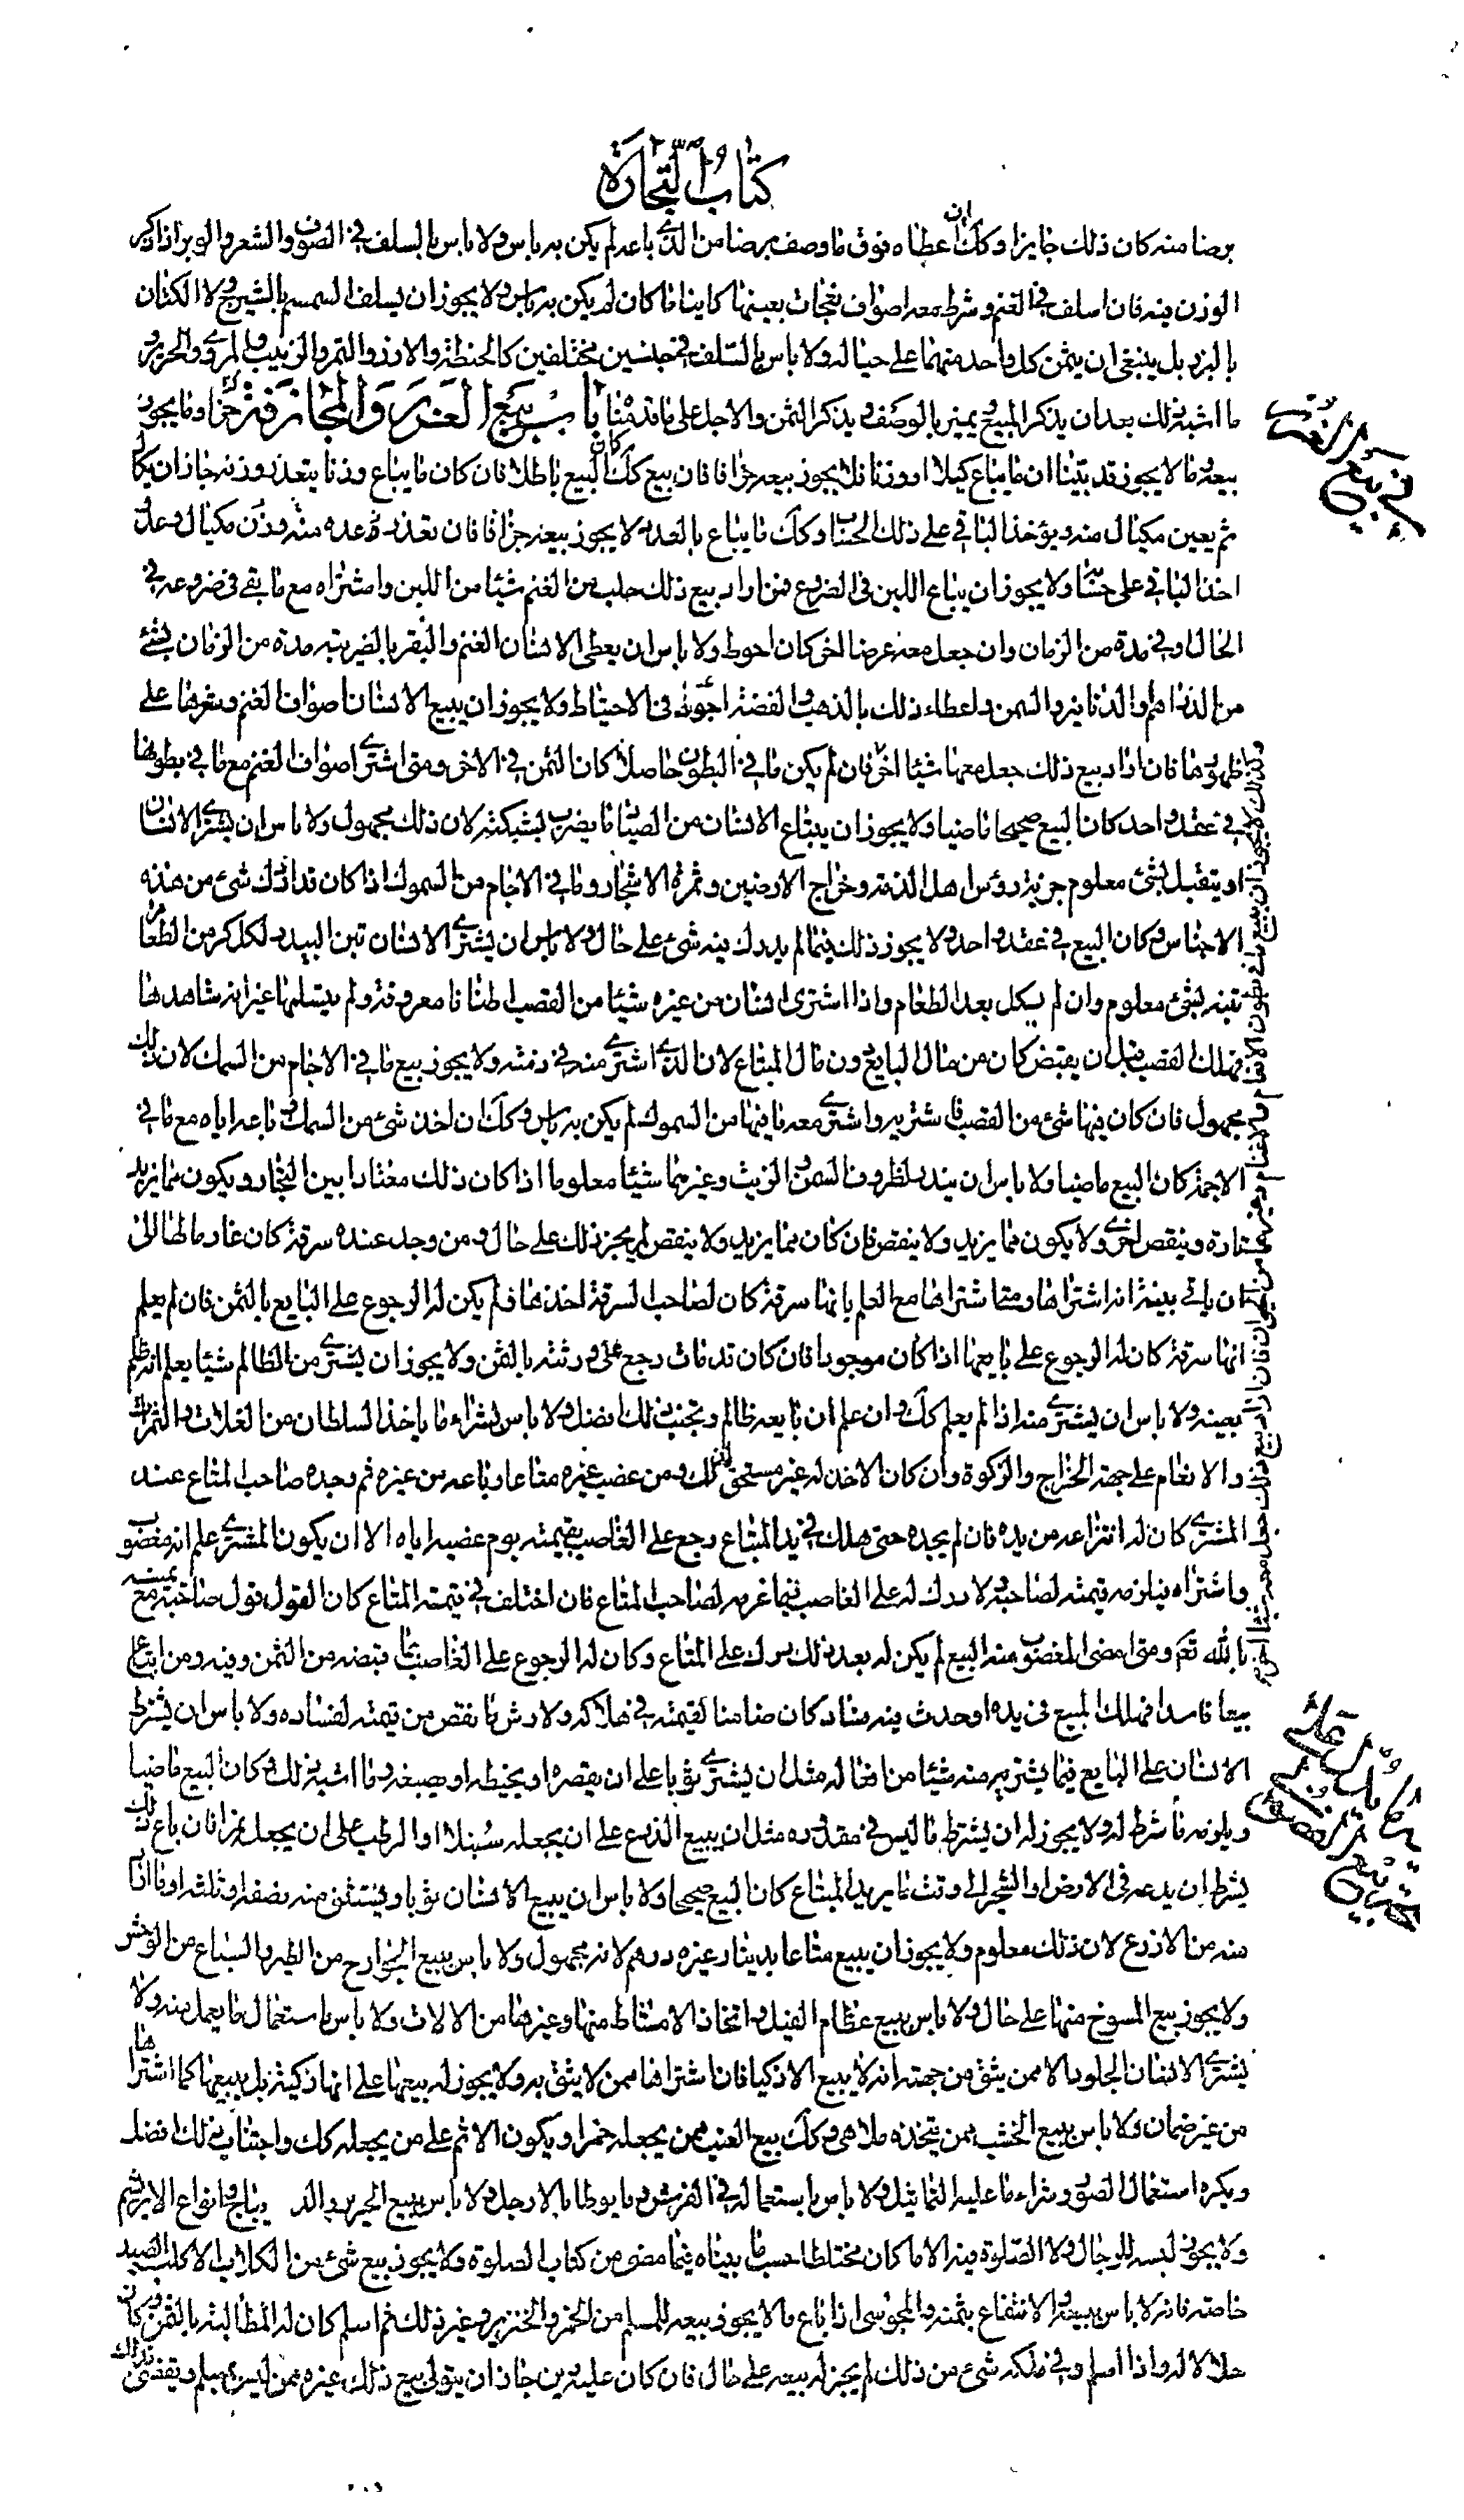 كتاب التجارة
برضا منه كان ذلك جايزا وكك ان اعطاه فوق ما وصف برضا من الذي باعه لم يكن به باس ولا باس بالسلف في الصوف والشعر والوبر اذا ذكر
الوزن فيه فان اسلف في الغنم وشرط معه اصواف نعجات بعينها كاينا ما كان لم يكن به باس ولا يجوز ان يسلف السمسم بالشيرج ولا الكتان
بالبزر بل ينبغي ان يثمن كل واحد منهما على حياله ولا باس بالسلف في جنسين مختلفين كالحنطة والارز والتمر والزبيب والمروي والحرير و
ما اشبه ذلك بعد ان يذكر المبيع ويميز بالوصف ويذكر الثمن والاجل على ما قدمناه باب بيع الغرر والمجازفة وما يجوز
بيعه وما لا يجوز قد بينا ان ما يباع كيلا او وزنا فلا يجوز بيعه جزافا فان بيع كك كان البيع باطلا فان كان ما يباع وزنا يتعذر وزنه جاز ان يكال
ثم يعين مكيال منه ويؤخذ الباقي على ذلك الحساب وكك ما يباع بالعدد لا يجوز بيعه جزافا فان تعذر عده منه وزن مكيال وعد و
اخذ الباقي على حسابه ولا يجوز ان يباع اللبن في الضروع فمن اراد بيع ذلك حلب من الغنم شيئا من اللبن واشتراه مع ما بقي في ضروعه في
الحال او في مدة من الزمان وان جعل معه عرضا اخر كان احوط ولا باس ان يعطي الانسان الغنم والبقر بالضريبة مدة من الزمان بشئ
من الدراهم والدنانير والسمن واعطاء ذلك بالذهب والفضة اجود في الاحتياط ولا يجوز ان يبيع الانسان اصواف الغنم وشعرها على
ظهورها فان اراد بيع ذلك جعل معها شيئا اخر فان لم يكن ما في البطون حاصلا كان الثمن في الاخر ومتى اشترى اصواف الغنم مع ما في بطونها
في عقد واحد كان البيع صحيحا ماضيا ولا يجوز ان يبتاع الانسان من الصياد ما يضرب بشبكته لان ذلك مجهول ولا باس ان يشتري الانسان
او يتقبل بشئ معلوم جزية رؤس اهل الذمة وخراج الارضين وثمرة الاشجار وما في الاجام من السموك اذا كان قد ادرك شئ من هذه
الاجناس وكان البيع في عقد واحد ولا يجوز ذلك فيما لم يدرك منه شئ على حال ولا باس ان يشتري الانسان تبن البيدر لكل كر من الطعام
تبنه بشئ معلوم وان لم يكل بعد الطعام واذا اشترى انسان من غيره شيئا من القصب اطنانا معروفة ولم يتسلمها غير انه شاهدها
فهلك القصب قبل ان يقبض كان من مال البايع دون مال المبتاع لان الذي اشترى منه في ذمته ولا يجوز بيع ما في الاجام من السمك لان ذلك
مجهول فان كان فيها شئ من القصب فاشتريه واشترى معه ما فيها من السموك لم يكن به باس وكك ان اخذ شئ من السمك وباعه اياه مع ما في
الاجمة كان البيع ماضيا ولا باس ان يندر لظروف السمن والزيت وغيرهما شيئا معلوما اذا كان ذلك معتادا بين التجار ويكون مما يزيد
تارة وينقص اخرى ولا يكون مما يزيد ولا ينقص فان كان مما يزيد ولا ينقص لم يجز ذلك على حال ومن وجد عنده سرقة كان غارما لها الا
ان ياتي ببينة انه اشتراها ومتى اشتراها مع العلم بانها سرقة كان لصاحب السرقة اخذها ولم يكن له الرجوع على البايع بالثمن فان لم يعلم
انها سرقة كان له الرجوع على بايعها اذا كان موجودا فان كان قد مات رجع على ورثته بالثمن ولا يجوز ان يشتري من الظالم شيئا يعلم انه ظلم
بعينه ولا باس ان يشتري منه اذا لم يعلم كك وان علم ان بايعه ظالم وتجنب ذلك افضل ولا باس بشراء ما ياخذ السلطان من الغلات والثمرات
والانعام على جهة الخراج والزكوة وان كان الاخذ له غير مستحق لذلك ومن غصب غيره متاعا وباعه من غيره ثم وجده صاحب المتاع عند
المشتري كان له انتزاعه من يده فان لم يجده حتى هلك في يد المبتاع رجع على الغاصب بقيمته يوم غصبه اياه الا ان يكون المشتري علم انه مغصوب
واشتراه فيلزمه قيمته لصاحبه ولا درك له على الغاصب فيما غرمه لصاحب المتاع فان اختلف في قيمة المتاع كان القول قول صاحبه مع يمينه
بالله تعالى ومتى امضى المغصوب منه البيع لم يكن له بعد ذلك درك على المتاع وكان له الرجوع على الغاصب بما قبضه من الثمن وفيه ومن ابتاع
بيعا فاسدا فهلك المبيع في يده او حدث فيه فساد كان ضامنا لقيمته في هلاكه ولارش ما نقص من قيمته لفساده ولا باس ان يشترط
الانسان على البايع فيما يشتريه منه شيئا من افعاله مثل ان يشتري ثوبا على ان يقصره او يخيطه او يصبغه وما اشبه ذلك وكان البيع ماضيا
ويلزمه ما شرط له ولا يجوز له ان يشترط ما ليس في مقدوره مثل ان يبيع الزرع على ان يجعله سنبلا او الرطب على ان يجعله تمرا فان باع ذلك
بشرط ان يدعه في الارض او الشجر الى وقت ما يريد المبتاع كان البيع صحيحا ولا باس ان يبيع الانسان ثوبا ويستثني منه نصفه او ثلثه او ما اراد
منه من الازرع لان ذلك معلوم ولا يجوز ان يبيع متاعا بدينار غيره درهم لانه مجهول ولا باس ببيع الجوارح من الطير والسباع من الوحش
ولا يجوز بيع المسوخ منها على حال ولا باس ببيع عظام الفيل واتخاذ الامشاط منها وغيرها من الالات ولا باس باستعمال ما يعمل منه ولا
يشتري الانسان الجلود الا ممن يثق من جهته انه لا يبيع الا ذكيا فان اشتراها ممن لا يثق به ولا يجوز له بيعها على انها ذكية بل يبيعها كما اشتراها
من غير ضمان ولا باس ببيع الخشب ممن يتخذه ملاهي وكك بيع العنب ممن يجعله خمرا ويكون الاثم على من يجعله كك واجتناب ذلك افضل
ويكره استعمال الصور وشراء ما عليه التماثيل ولا باس باستعماله في الفرش وما يوطا بالارجل ولا باس ببيع الحرير والديباج وانواع الابريشم
ولا يجوز لبسه للرجال ولا الصلوة فيه الا ما كان مختلطا حسب ما بيناه فيما مضى من كتاب الصلوة ولا يجوز بيع شئ من الكلاب الا كلب الصيد
خاصة فانه لا باس ببيعه والانتفاع بثمنه والمجوسي اذا باع ما لا يجوز بيعه للمسلم من الخمر والخنزير وغير ذلك ثم اسلم كان له المطالبة بالثمن وكان
حلالا له واذا اسلم وفي ملكه شئ من ذلك لم يجز له بيعه على حال فان كان عليه دين جاز ان يتولى بيع ذلك غيره ممن ليس بمسلم ويقضي بذلك
في بيع الغرر
وكذلك لا يجوز ان يبيع ما في بطون الانعام والاغنام وغيرهما من الحيوان فان اراد بيع ذلك جعل معه شيئا اخر